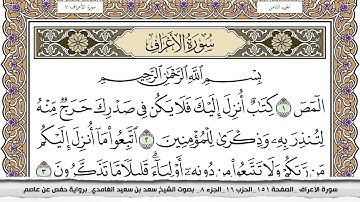 سورة الأعراف ٧
الجزء الثامن
سُورَةُ الأَعْرَافِ
بِسْمِ اللَّهِ الرَّحْمَٰنِ الرَّحِيمِ
الٓمٓصٓ ١ كِتَٰبٌ أُنزِلَ إِلَيْكَ فَلَا يَكُن فِى صَدْرِكَ حَرَجٌ مِّنْهُ
لِتُنذِرَ بِهِۦ وَذِكْرَىٰ لِلْمُؤْمِنِينَ ٢ ٱتَّبِعُوا۟ مَآ أُنزِلَ إِلَيْكُم
مِّن رَّبِّكُمْ وَلَا تَتَّبِعُوا۟ مِن دُونِهِۦٓ أَوْلِيَآءَ ۗ قَلِيلًا مَّا تَذَكَّرُونَ ٣
سورة الأعراف _ الصفحة ١٥١ _ الحزب ١٦ _ الجزء ٨ _ بصوت الشيخ سعد بن سعيد الغامدي _ برواية حفص عن عاصم